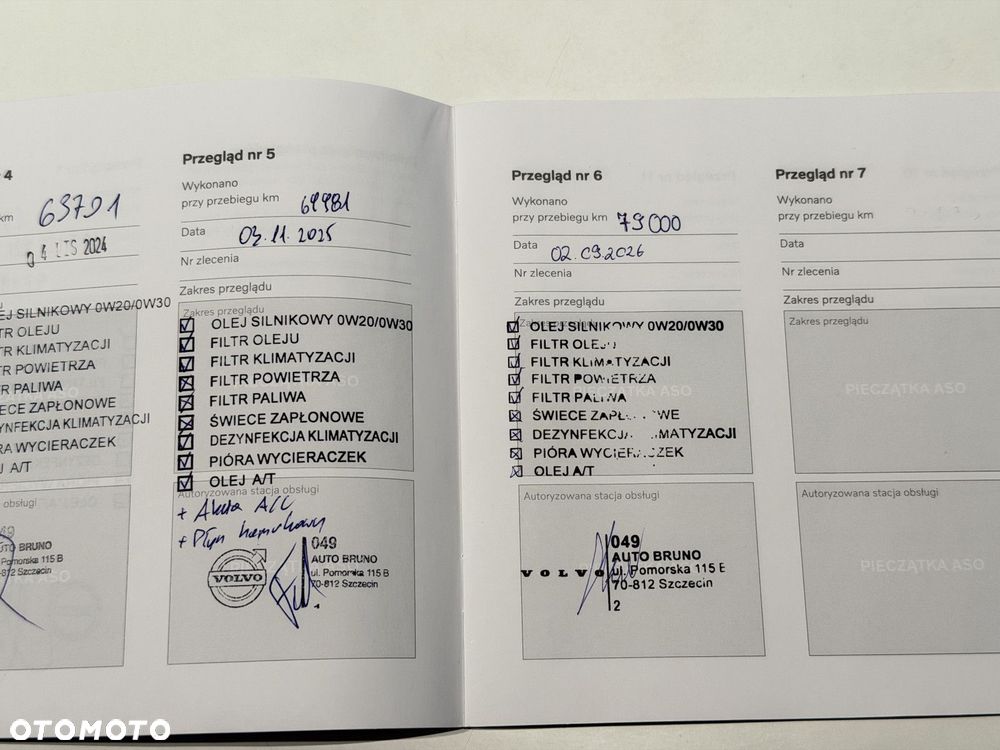 4
km 63791
04 LIS 2024
EJ SILNIKOWY 0W20/0W30
TR OLEJU
TR KLIMATYZACJI
TR POWIETRZA
R PALIWA
IECE ZAPŁONOWE
YNFEKCJA KLIMATYZACJI
RA WYCIERACZEK
J A/T
obsługi
AUTO BRUNO
Pomorska 115 B
-812 Szczecin
Przegląd nr 5
Wykonano
przy przebiegu km 69981
Data 03.11.2025
Nr zlecenia
Zakres przeglądu
Zakres przeglądu
OLEJ SILNIKOWY 0W20/0W30
FILTR OLEJU
FILTR KLIMATYZACJI
FILTR POWIETRZA
FILTR PALIWA
ŚWIECE ZAPŁONOWE
DEZYNFEKCJA KLIMATYZACJI
PIÓRA WYCIERACZEK
OLEJ A/T
Autoryzowana stacja obsługi
+ Akcja A/C
+ Płyn hamulcowy
VOLVO
049
AUTO BRUNO
ul. Pomorska 115 B
70-812 Szczecin
Przegląd nr 6
Wykonano
przy przebiegu km 79000
Data 02.09.2026
Nr zlecenia
Zakres przeglądu
OLEJ SILNIKOWY 0W20/0W30
FILTR OLEJU
FILTR KLIMATYZACJI
FILTR POWIETRZA
FILTR PALIWA
ŚWIECE ZAPŁONOWE
DEZYNFEKCJA KLIMATYZACJI
PIÓRA WYCIERACZEK
OLEJ A/T
Autoryzowana stacja obsługi
VOLVO
049
AUTO BRUNO
ul. Pomorska 115 B
70-812 Szczecin
2
Przegląd nr 7
Wykonano
przy przebiegu km
Data
Nr zlecenia
Zakres przeglądu
Zakres przeglądu
PIECZĄTKA ASO
Autoryzowana stacja obsługi
PIECZĄTKA ASO
OTOMOTO